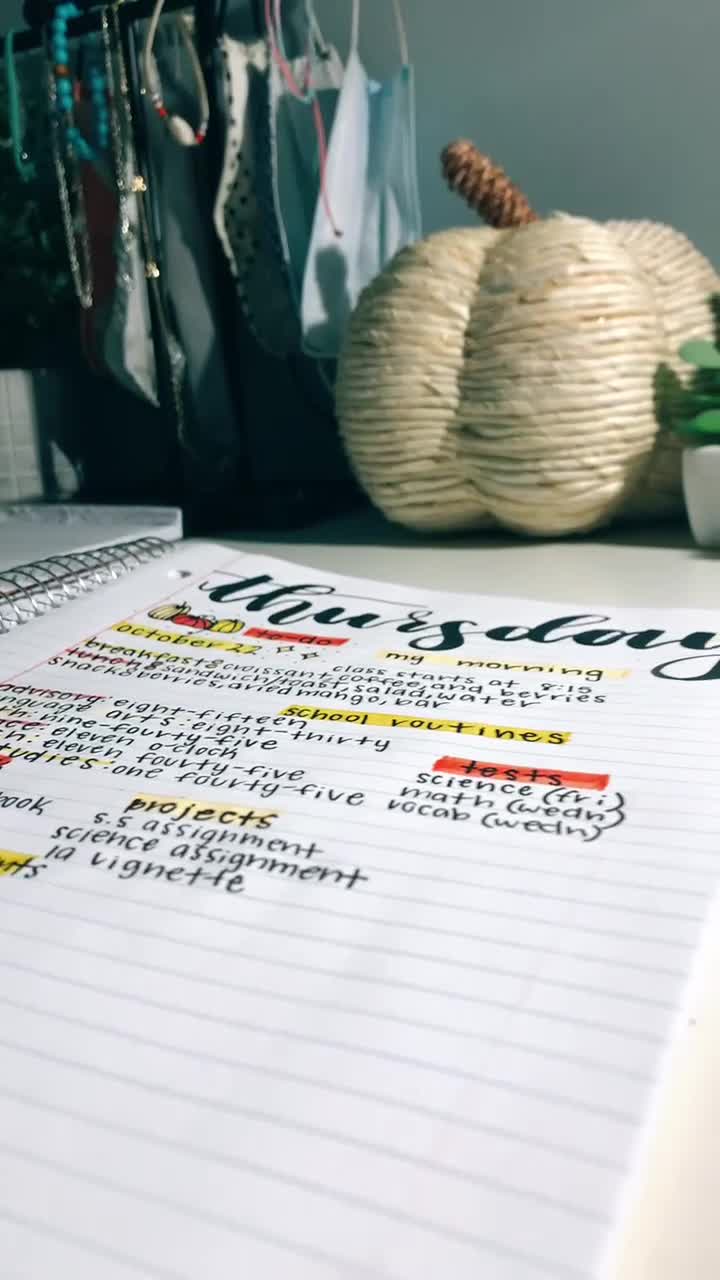 thursday
october 22 to-do
my morning
class starts at 8:15
breakfast: croissant, coffee, and berries
lunch: sandwich/toast, salad, water
snack: berries, dried mango, bar
school routines
advisory: eight-fifteen
language arts: eight-thirty
nine-fourty-five
eleven o'clock
eleven fourty-five
studies: one fourty-five
tests
science (fri)
math (wedn)
vocab (wedn)
book
projects
s.s assignment
science assignment
la vignette